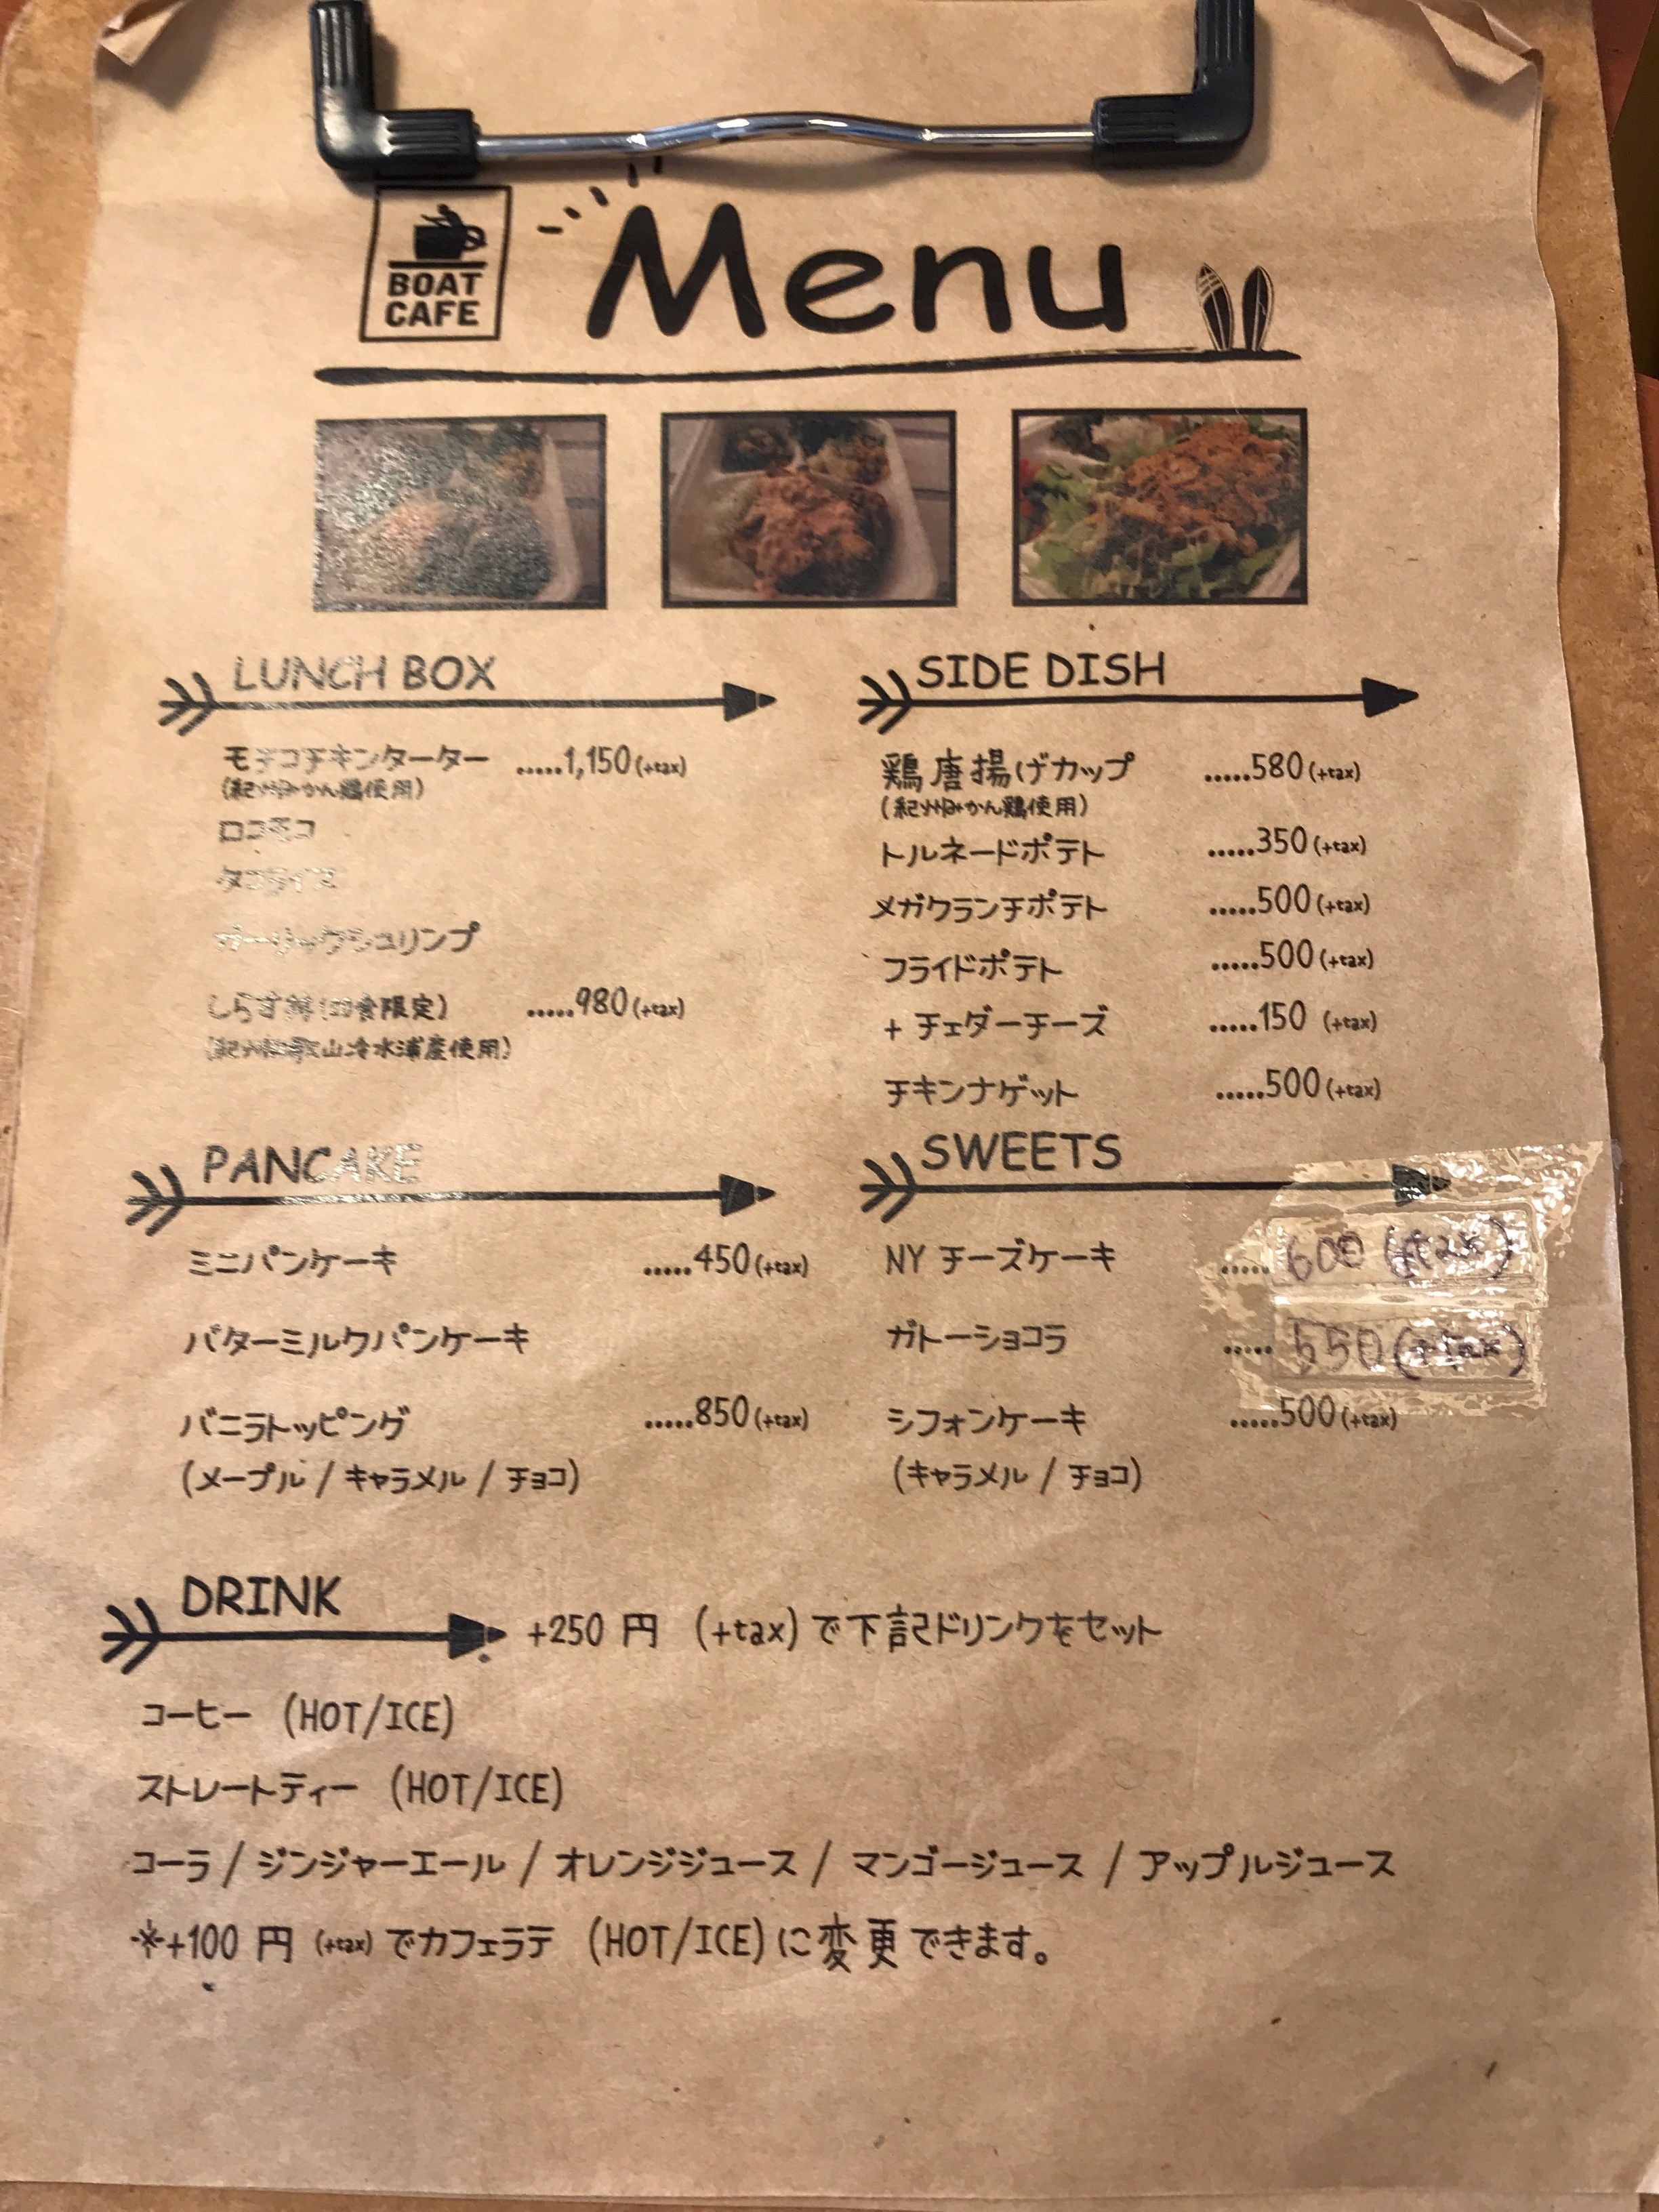 BOAT
CAFE
Menu
LUNCH BOX
モチコチキンタータター .....1,150(+tax)
(紀州みかん鶏使用)
ロコモコ
タコライス
ガーリックシュリンプ
しらす丼(20食限定) .....980(+tax)
(紀州和歌山冷水浦産使用)
SIDE DISH
鶏唐揚げカップ .....580(+tax)
(紀州みかん鶏使用)
トルネードポテト .....350(+tax)
メガクランチポテト .....500(+tax)
フライドポテト .....500(+tax)
+ チェダーチーズ .....150 (+tax)
チキンナゲット .....500(+tax)
PANCAKE
ミニパンケーキ .....450(+tax)
バターミルクパンケーキ
バニラトッピング .....850(+tax)
(メープル / キャラメル / チョコ)
SWEETS
NY チーズケーキ ..... 600 (+tax)
ガトーショコラ ..... 550 (+tax)
シフォンケーキ .....500(+tax)
(キャラメル / チョコ)
DRINK +250 円 (+tax) で下記ドリンクをセット
コーヒー (HOT/ICE)
ストレートティー (HOT/ICE)
コーラ / ジンジャーエール / オレンジジュース / マンゴージュース / アップルジュース
※+100 円 (+tax) でカフェラテ (HOT/ICE) に変更できます。